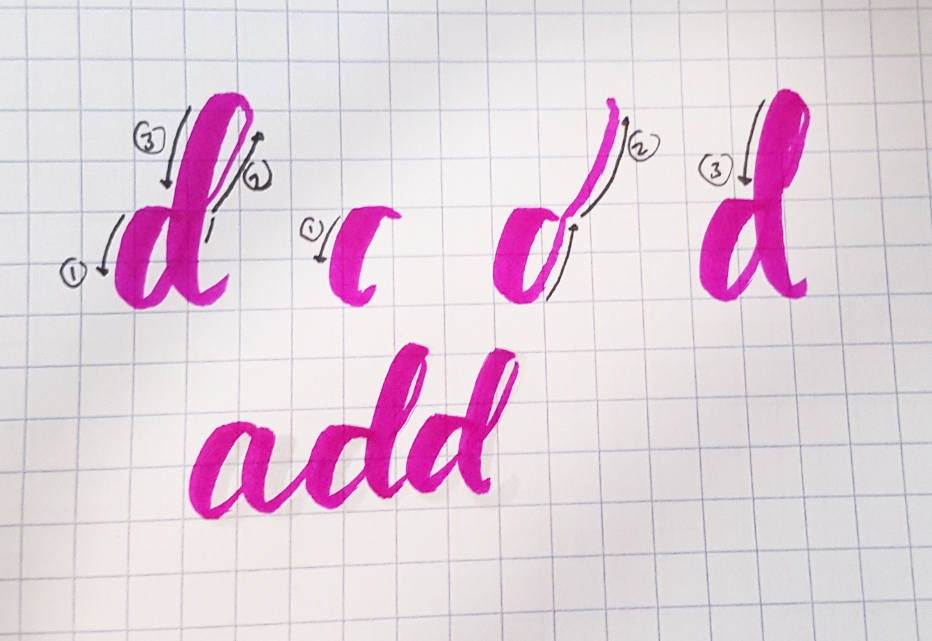 ③ ② ① d ① c ② d ③ d
add